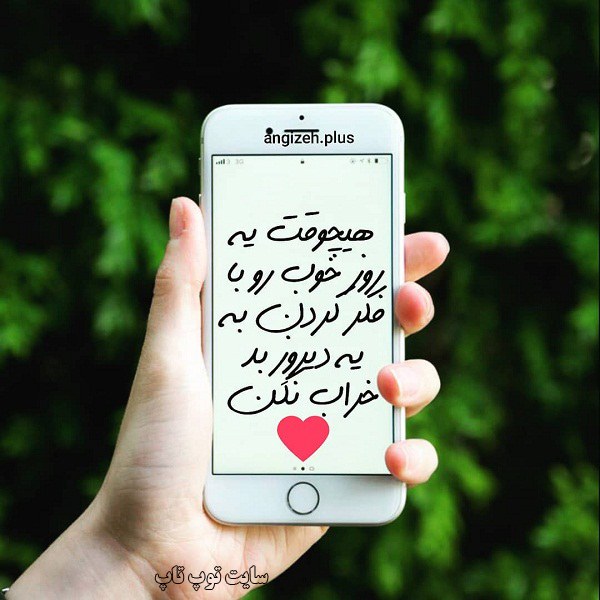 angizeh.plus
3G
هیچوقت یه
روز خوب رو با
فکر کردن به
یه دیروز بد
خراب نکن
سایت توپ تاپ